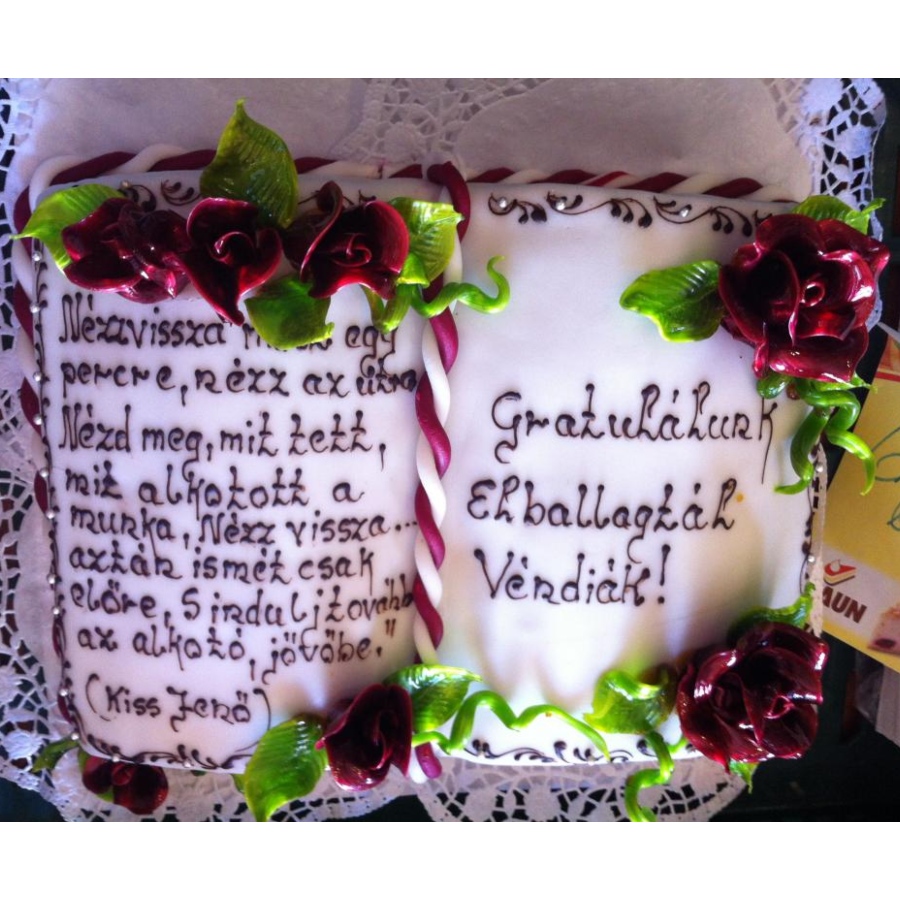 Nézzvissza egy
percre, nézz az útra
Nézd meg, mit tett,
mit alkotott a
munka, Nézz vissza...
aztán ismét csak
előre, S indulj tovább
az alkotó, jövőbe."
(Kiss Jenő)
Gratulálunk
Elballagtál
Véndiák!
AUN